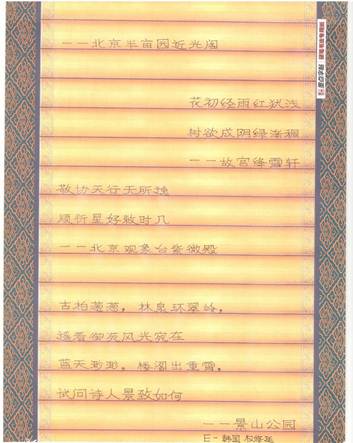 ——北京半亩园近光阁
花初经雨红犹浅
树欲成阴绿渐稠
——故宫绛雪轩
敬协天行无所逸
顺祈星好敕时几
——北京观象台紫微殿
古柏葱葱，林泉环翠岭，
遥看御苑风光宛在
蓝天渺渺，楼阁出重霄，
试问诗人景致如何
——景山公园